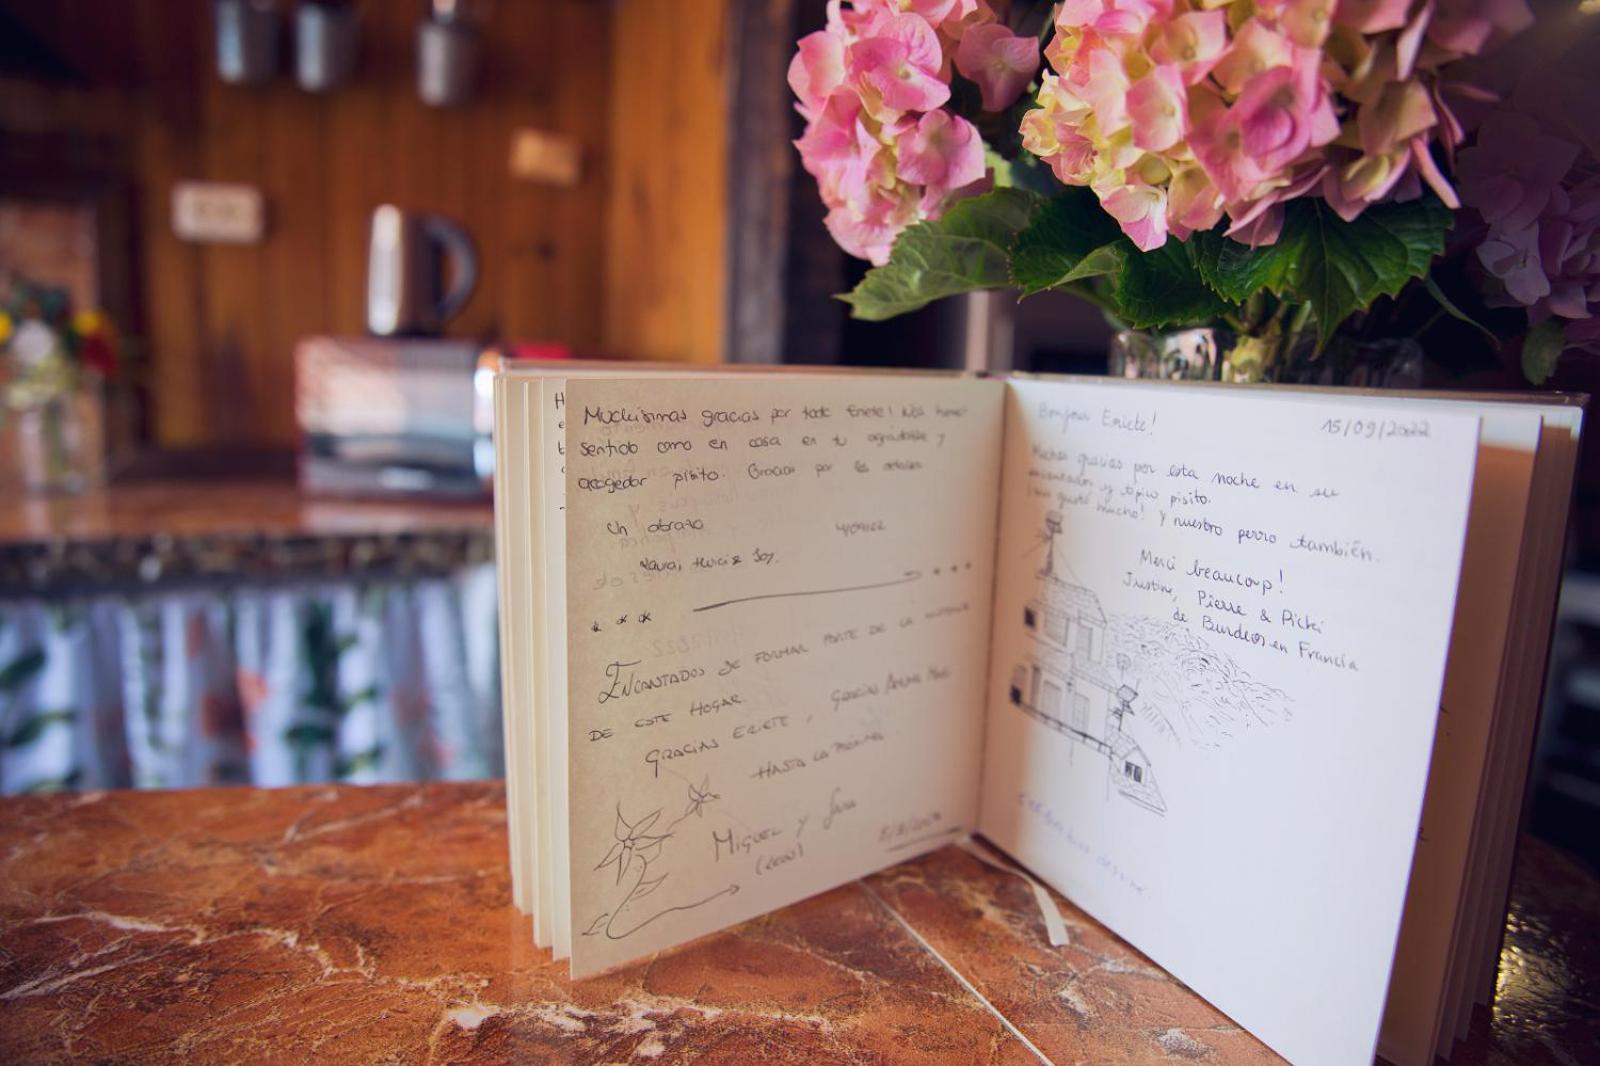 Muchísimas gracias por todo Eriete! Nos hemos
sentido como en casa en tu agradable y
acogedor pisito. Gracias por los detalles
Un abrazo
Laura,
* * *
ENCANTADOS DE FORMAR PARTE DE LA HISTORIA
DE ESTE HOGAR.
GRACIAS ERIETE, GRACIAS
HASTA LA PRÓXIMA...
MIGUEL Y Sara
Bonjour Eriete!
15/09/2022
Muchas gracias por esta noche en su
encantador y típico pisito.
¡Me gustó mucho! Y nuestro perro también.
Merci beaucoup!
Justine, Pierre &
de Burdeos en Francia